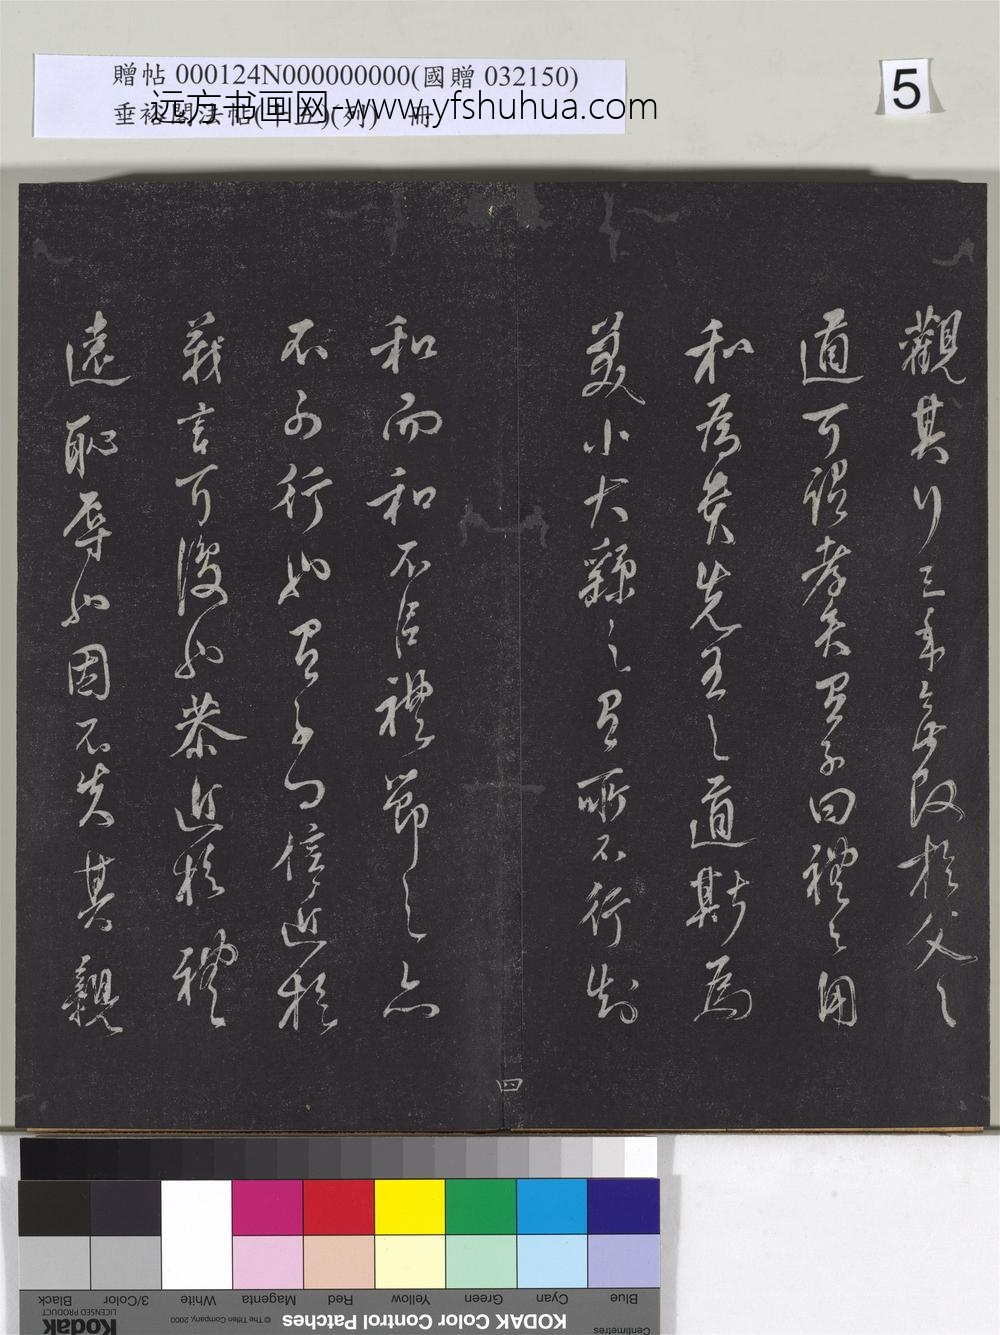 贈帖 000124N000000000(國贈 032150)
垂裕閣法帖(十五)(列) 冊
远方书画网-www.yfshuhua.com
5
觀其行三年無改於父之
道可謂孝矣有子曰禮之用
和為貴先王之道斯為
美小大繇之有所不行知
和而和不以禮節之亦
不可行也有子曰信近於
義言可復也恭近於禮
遠恥辱也因不失其親
四
Blue Cyan Green Yellow Red Magenta White 3/Color Black
KODAK Color Control Patches
© The Tiffen Company, 2000
Kodak
LICENSED PRODUCT
Centimetres